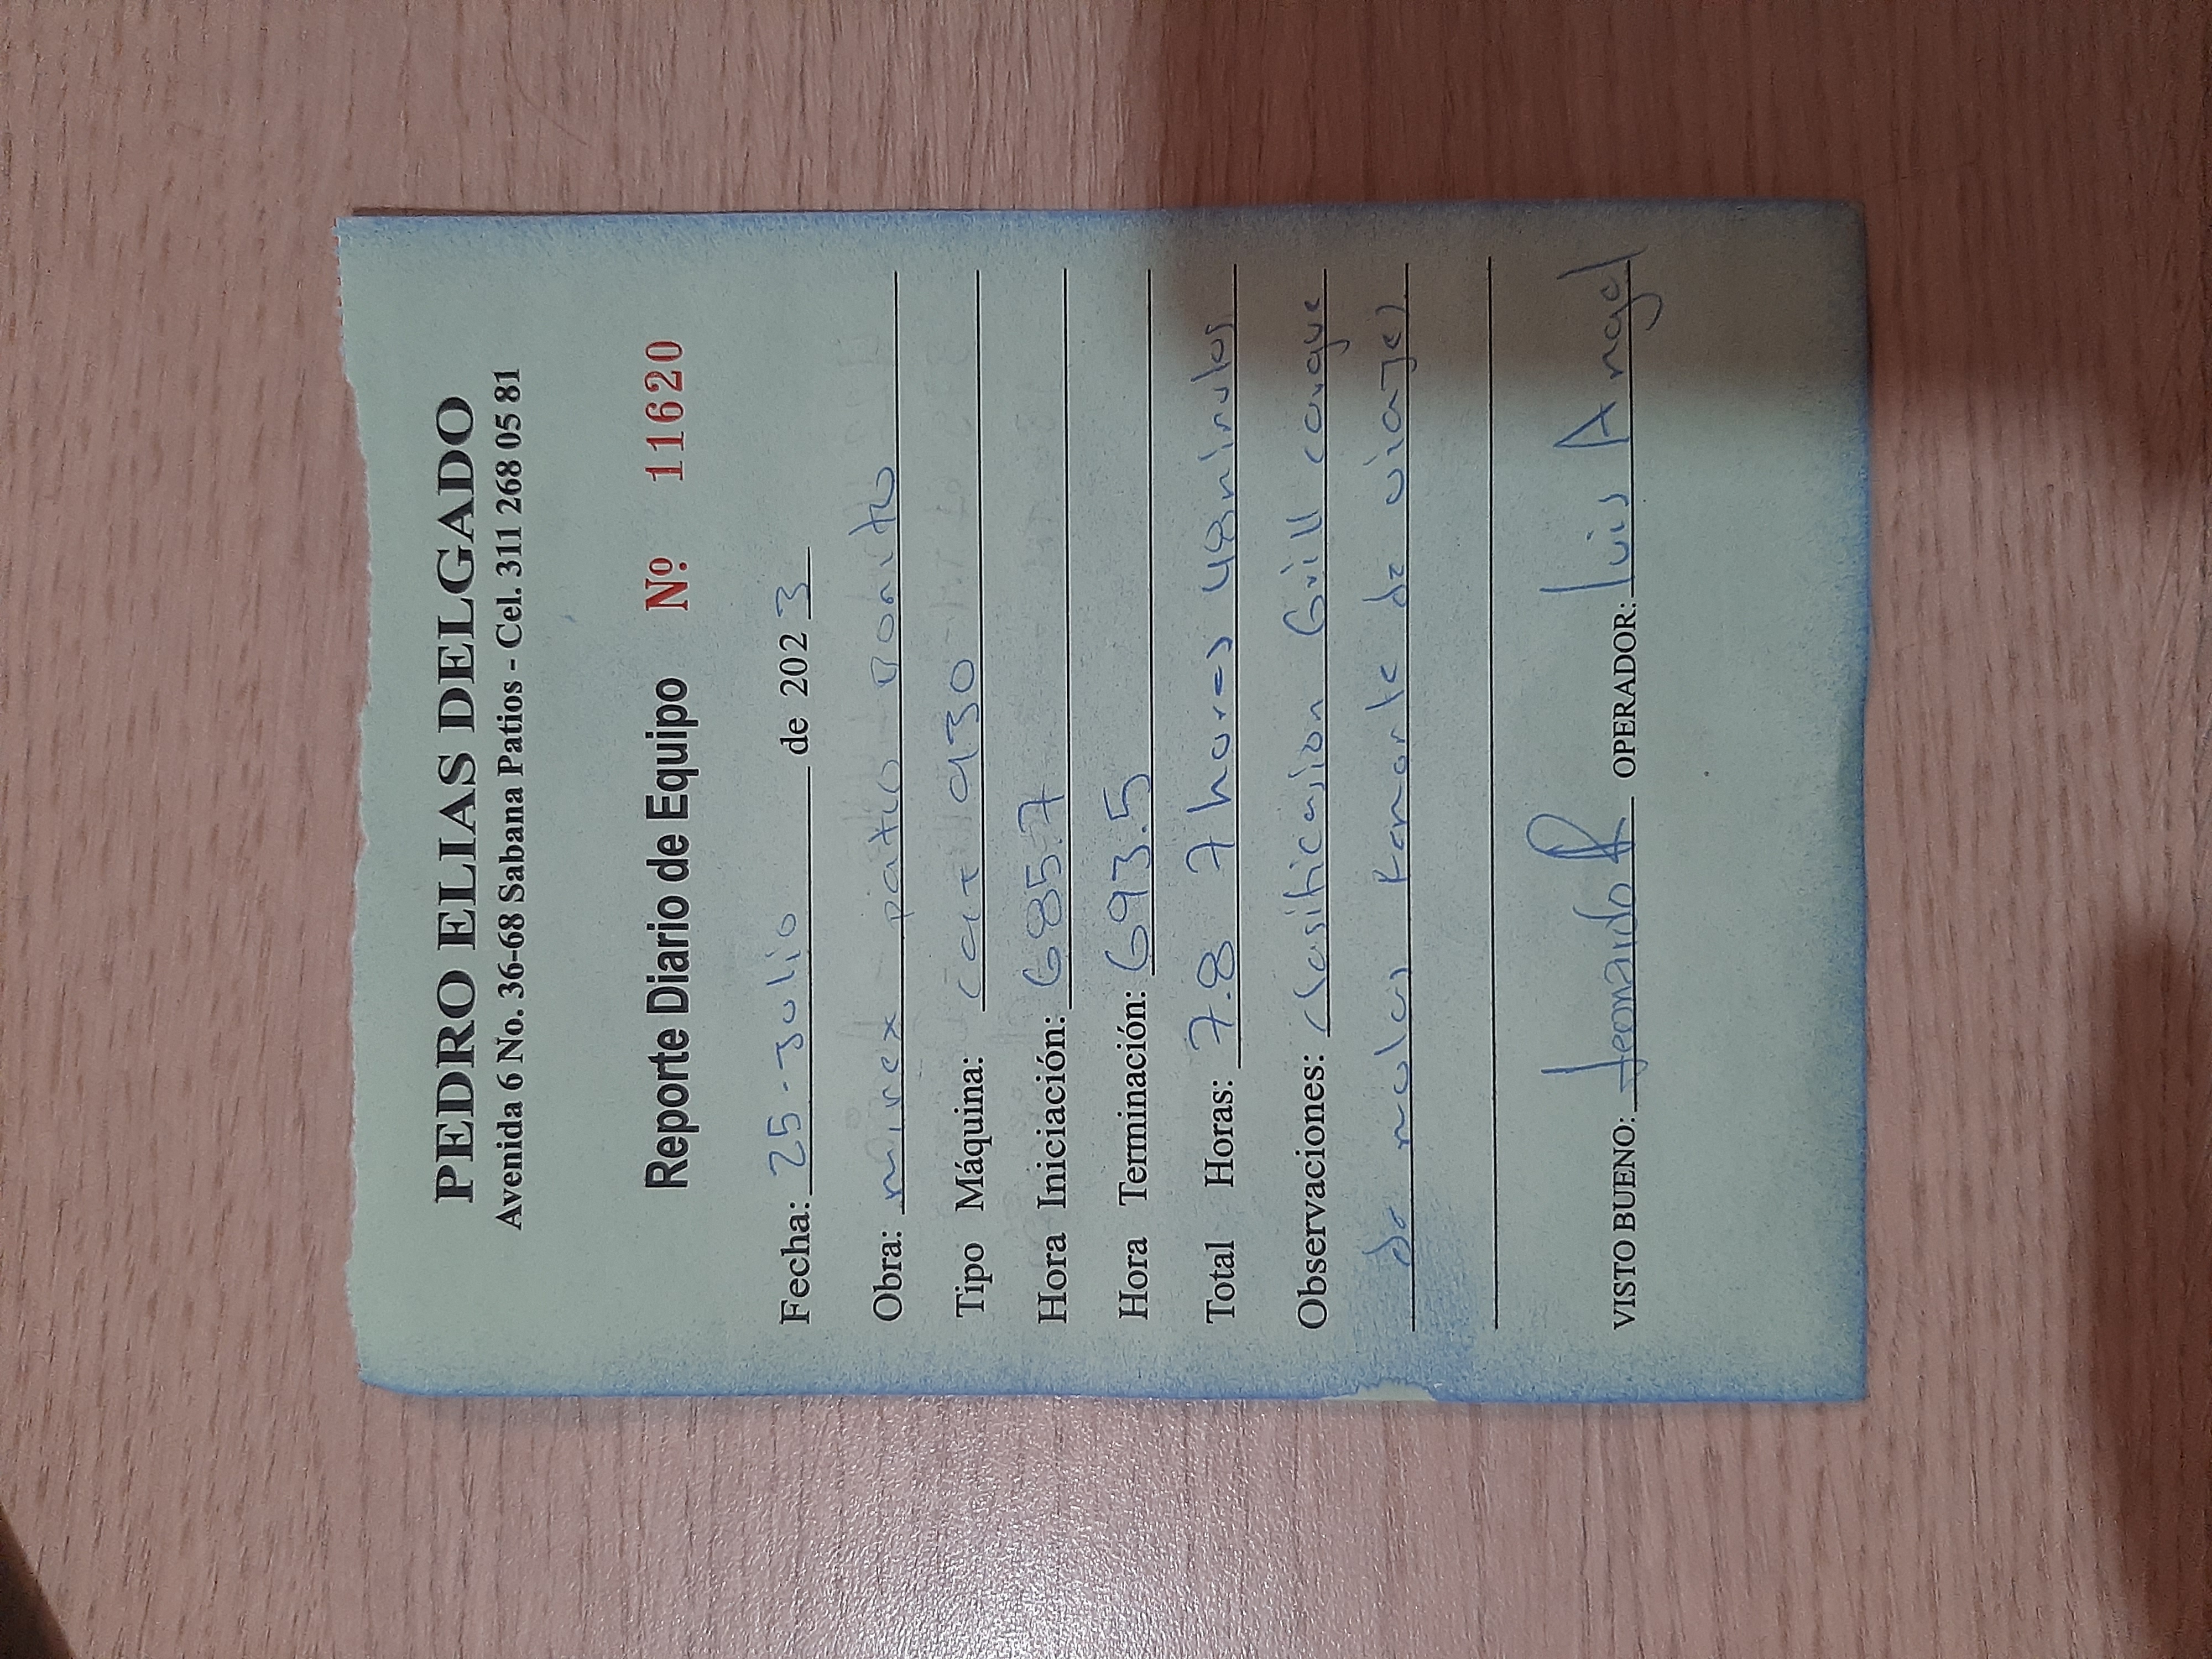 PEDRO ELIAS DELGADO
Avenida 6 No. 36-68 Sabana Patios - Cel. 311 268 05 81
Reporte Diario de Equipo Nº 11620
Fecha: 25-Julio de 2023
Obra: mirex patio Bonito
Tipo Máquina: cat 930
Hora Iniciación: 685.7
Hora Terminación: 693.5
Total Horas: 7.8 7 horas 48 minutos
Observaciones: clasificasion Grill cargue
de mulas Remonte de viajes
VISTO BUENO: Leonardo R OPERADOR: Luis Angel